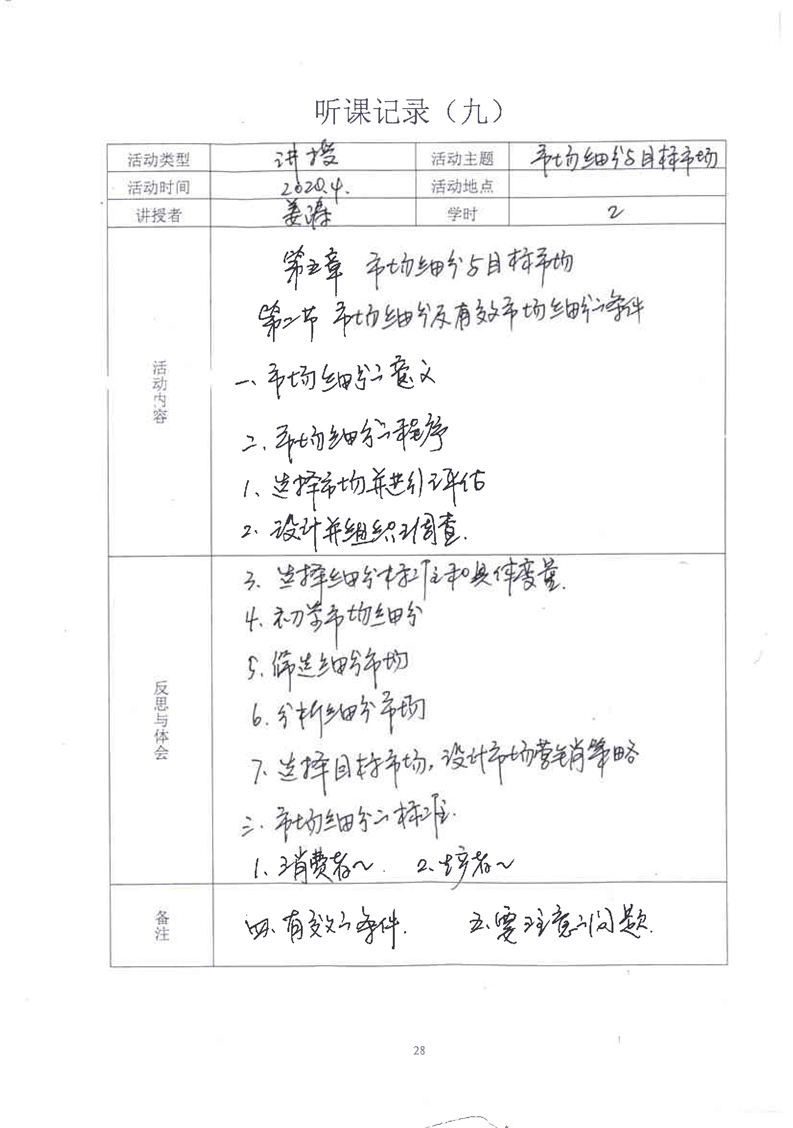 听课记录（九）
活动类型 讲授 活动主题 市场细分与目标市场
活动时间 2020.4. 活动地点
讲授者 姜涛 学时 2
活动内容
第五章 市场细分与目标市场
第二节 市场细分及有效市场细分之条件
一、市场细分之意义
二、市场细分之程序
1、选择市场并进行评估
2、设计并组织调查.
反思与体会
3、选择细分标准和具体变量.
4、初学市场细分
5、筛选细分市场
6、分析细分市场
7、选择目标市场，设计市场营销策略
三、市场细分之标准.
1、消费者～ 2、生产者～
备注
四、有效之条件. 五、要注意之问题.
28